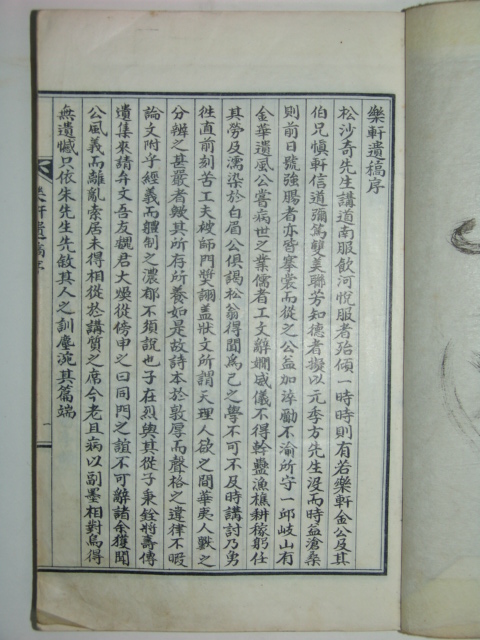 樂軒遺稿序
松沙奇先生講道南服飮河悅服者殆傾一時時則有若樂軒金公及其
伯兄愼軒信道彌篤雙美聯芳知德者擬以元季方先生沒而時益滄桑
則前日號強腸者亦皆搴裳而從之公益加淬勵不渝所守一邱岐山有
金華遺風公嘗病世之業儒者工文辭嫺威儀不得幹蠱漁樵耕稼躬任
其勞及濡染於白眉公俱謁松翁得聞爲己之學不可不及時講討乃勇
徃直前刻苦工夫被師門奬詡盖狀文所謂天理人欲之間華夷人獸之
分辨之甚嚴者緻其所存所養如是故詩本於敦厚而聲格之違律不暇
論文附守經義而體制之濃郁不須說也子在烈與其從子秉銓將壽傳
遺集來請弁文吾友魏君大煥從傍申之曰同門之誼不可辭諸余獲聞
公風義而離亂索居未得相從於講質之席今老且病以副墨相對烏得
無遺憾只依朱先生先敘其人之訓塵浼其篇端
樂軒遺稿序
一